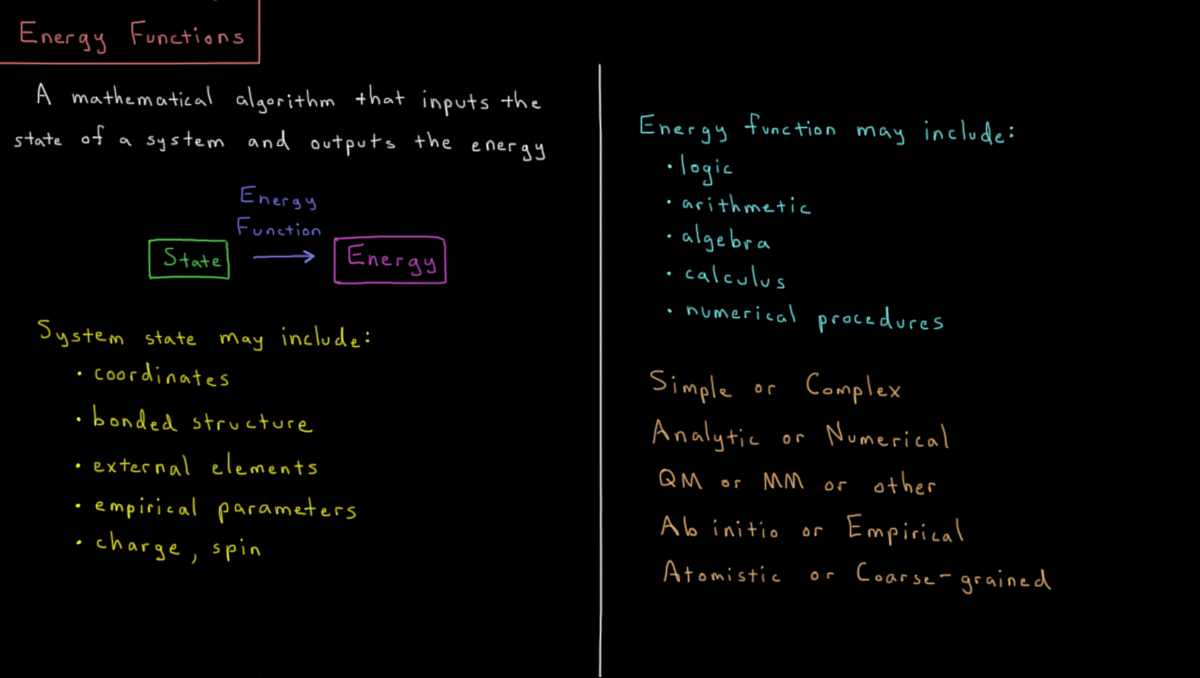 Energy Functions
A mathematical algorithm that inputs the
state of a system and outputs the energy
Energy
Function
State → Energy
System state may include:
• coordinates
• bonded structure
• external elements
• empirical parameters
• charge, spin
Energy function may include:
• logic
• arithmetic
• algebra
• calculus
• numerical procedures
Simple or Complex
Analytic or Numerical
QM or MM or other
Ab initio or Empirical
Atomistic or Coarse-grained